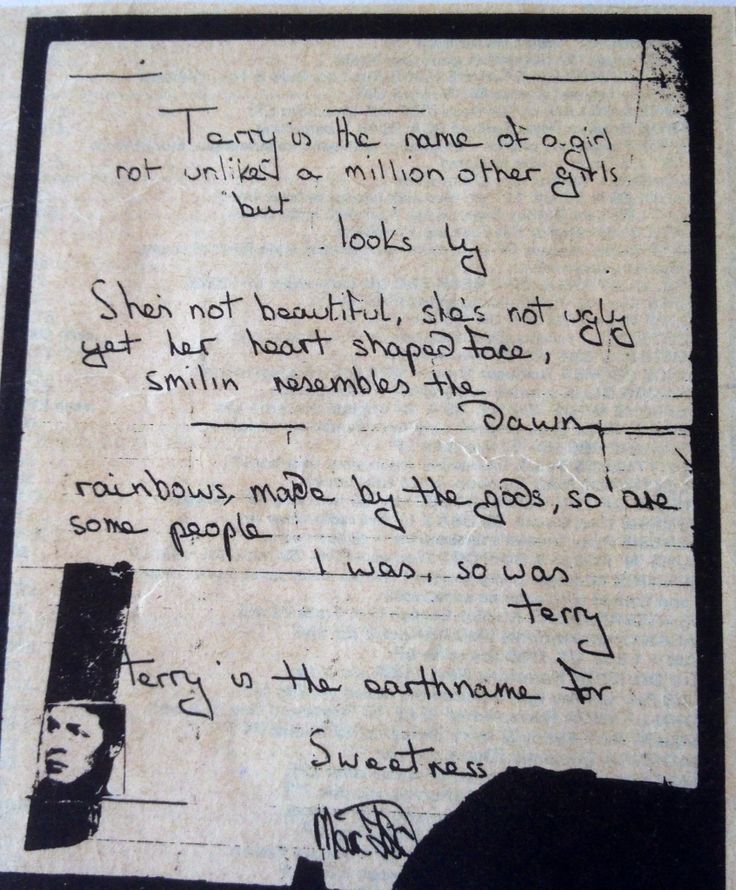 Terry is the name of a girl
not unliked a million other girls
but
looks ly
She's not beautiful, she's not ugly
yet her heart shaped face,
smilin resembles the
Dawn
rainbows, made by the gods, so are
some people
I was, so was
terry
terry is the earthname for
Sweetness
Marc